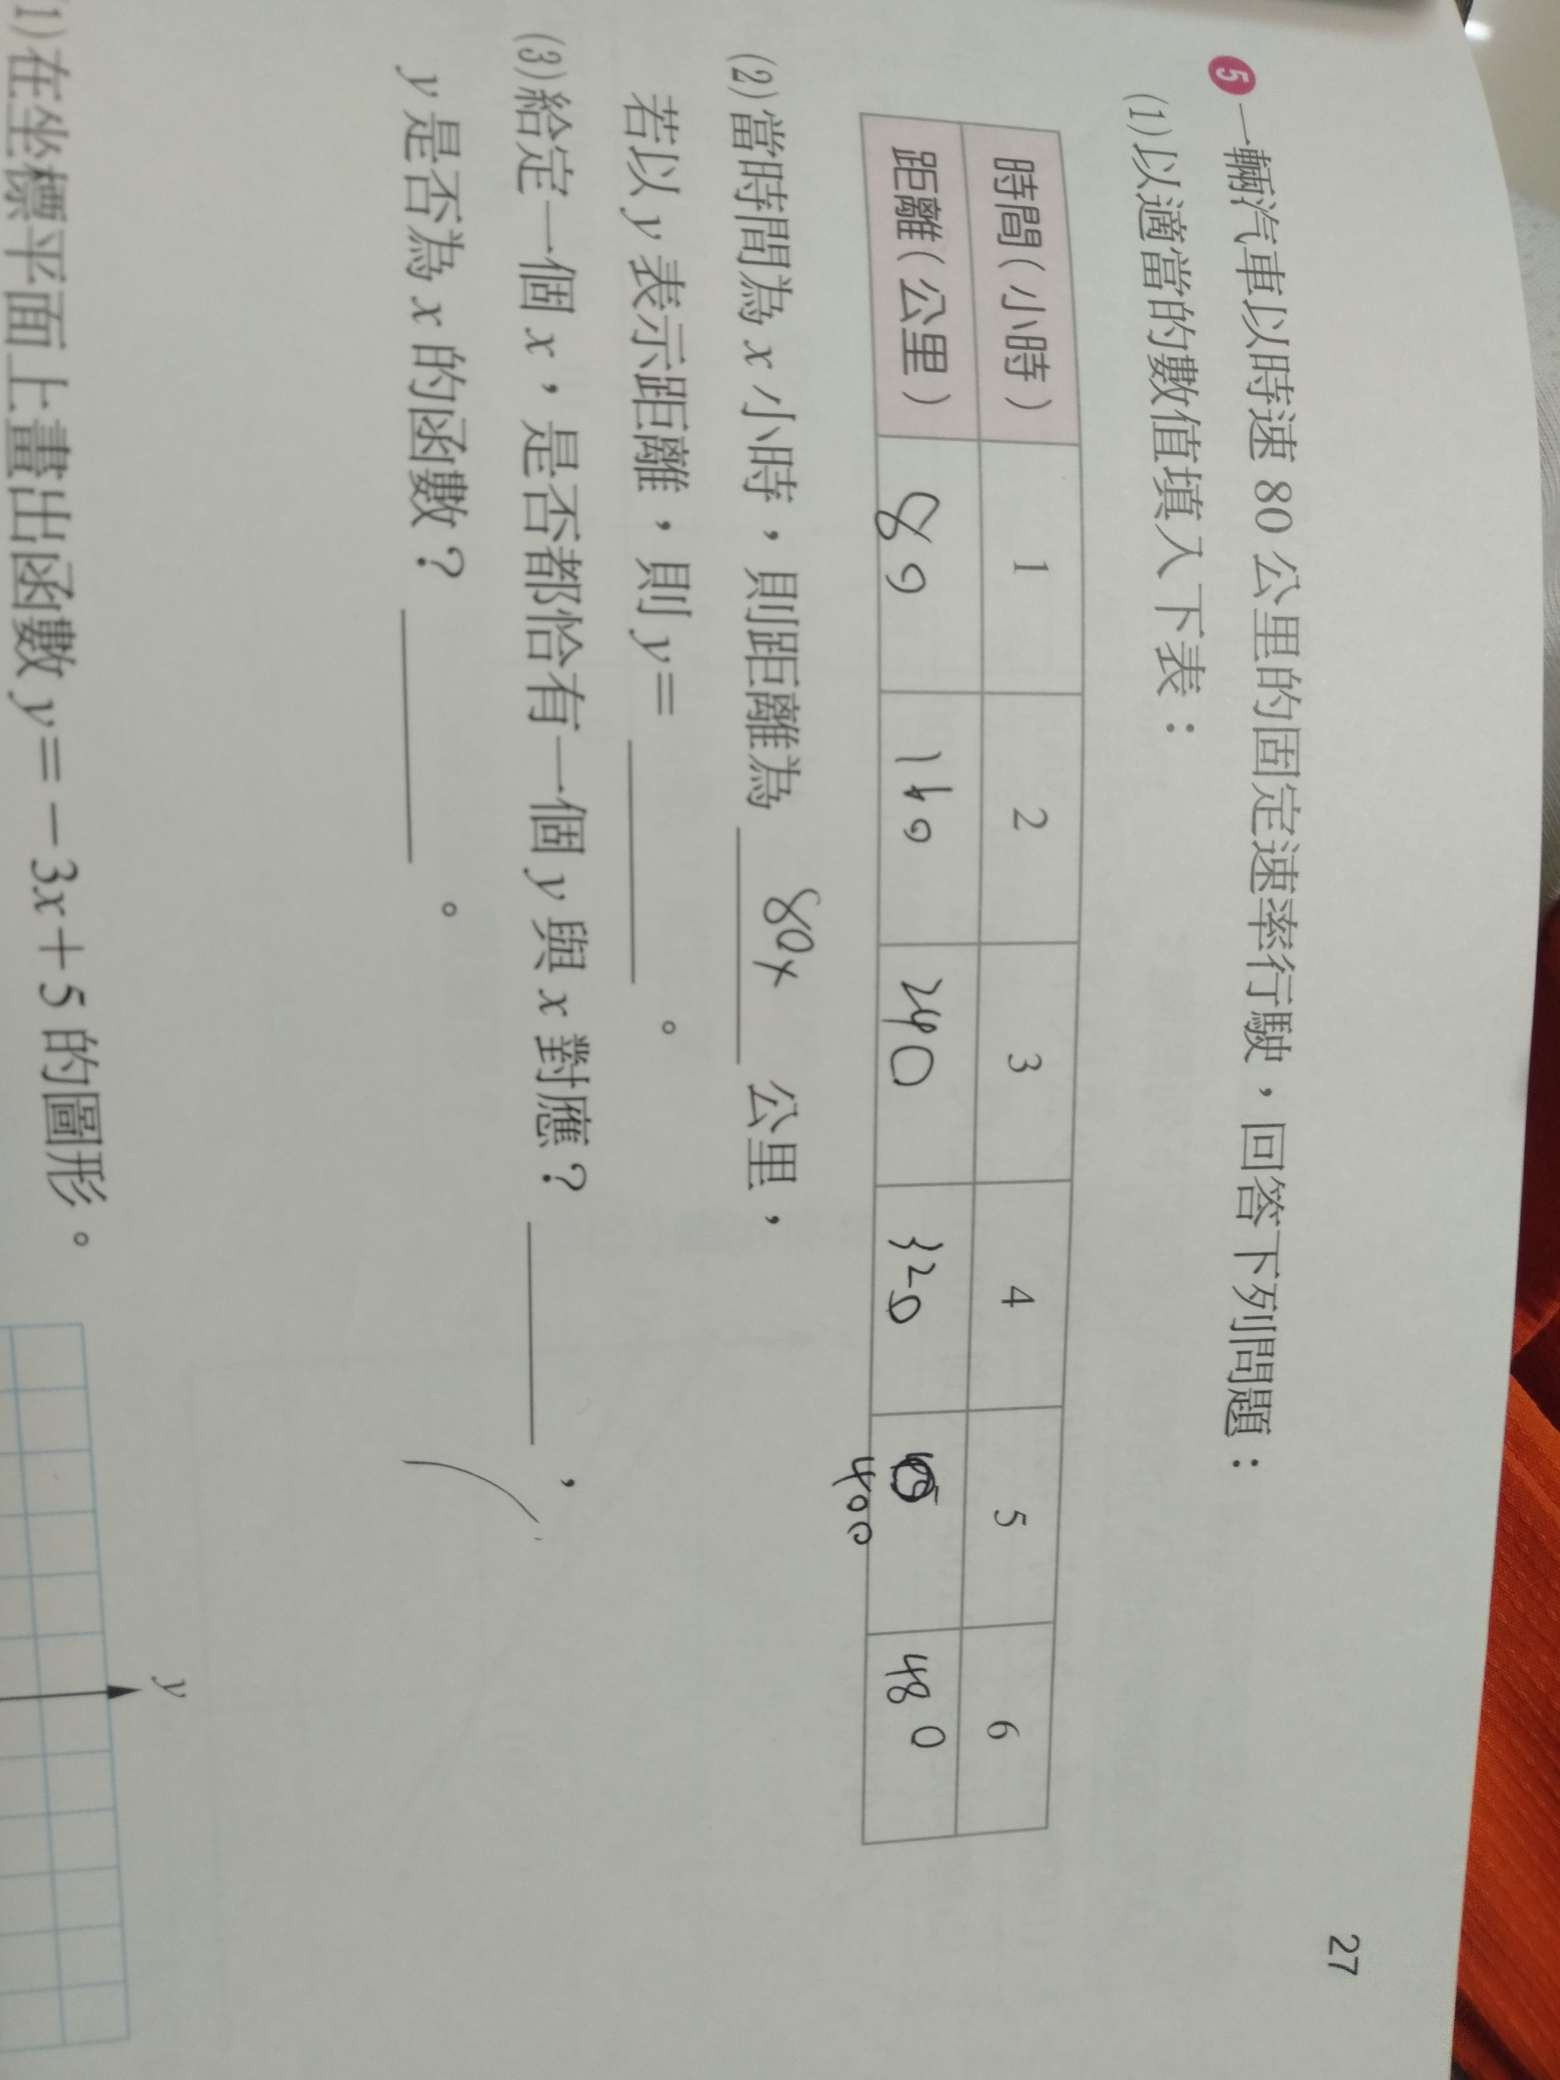 27
5 一輛汽車以時速 80 公里的固定速率行駛，回答下列問題：
(1)以適當的數值填入下表：
時間(小時) 1 2 3 4 5 6
距離(公里) 80 160 240 320 400 480
(2)當時間為 x 小時，則距離為 80x 公里，
若以 y 表示距離，則 y= 。
(3)給定一個 x，是否都恰有一個 y 與 x 對應？ ，
y 是否為 x 的函數？ 。
1)在坐標平面上畫出函數 y=－3x＋5 的圖形。
y